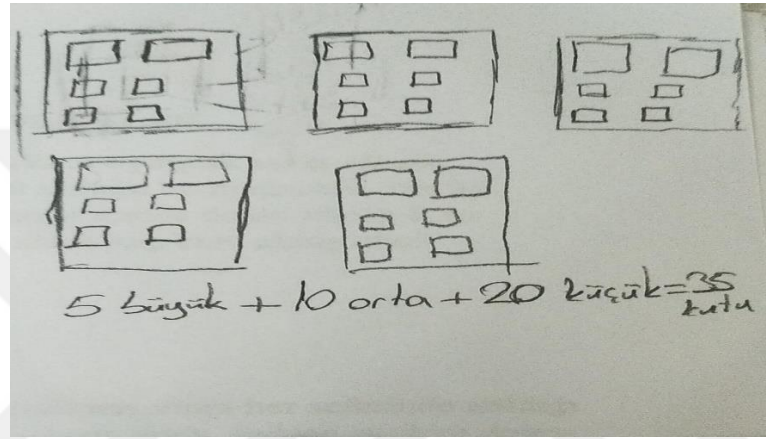 5 büyük + 10 orta + 20 küçük = 35 kutu